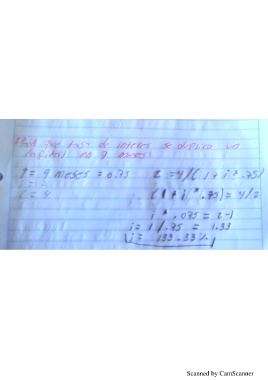 que tasa de interes se duplica un
capital en 9 meses?
t = 9 meses = 0.75
2 = 4/(1+i*.75)
(1+i*.75) = 4/2
i*.075 = 2-1
i = 1/.75 = 1.33
i = 133.33%
Scanned by CamScanner